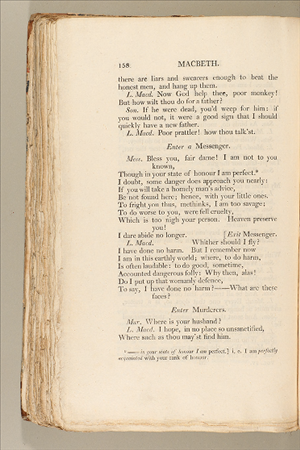 158 MACBETH.
there are liars and swearers enough to beat the
honest men, and hang up them.
L. Macd. Now God help thee, poor monkey!
But how wilt thou do for a father?
Son. If he were dead, you'd weep for him: if
you would not, it were a good sign that I should
quickly have a new father.
L. Macd. Poor prattler! how thou talk'st.
Enter a Messenger.
Mess. Bless you, fair dame! I am not to you
known,
Though in your state of honour I am perfect.*
I doubt, some danger does approach you nearly:
If you will take a homely man's advice,
Be not found here; hence, with your little ones.
To fright you thus, methinks, I am too savage;
To do worse to you, were fell cruelty,
Which is too nigh your person. Heaven preserve
you!
I dare abide no longer. [Exit Messenger.
L. Macd. Whither should I fly?
I have done no harm. But I remember now
I am in this earthly world; where, to do harm,
Is often laudable: to do good, sometime,
Accounted dangerous folly: Why then, alas!
Do I put up that womanly defence,
To say, I have done no harm?——What are these
faces?
Enter Murderers.
Mur. Where is your husband?
L. Macd. I hope, in no place so unsanctified,
Where such as thou may'st find him.
*——in your state of honour I am perfect.] i. e. I am perfectly
acquainted with your rank of honour.